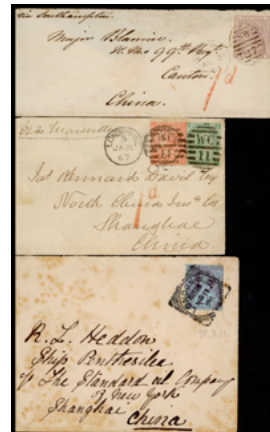 via Southampton
Major Blamire
H. Ms 99th Regt.
Canton.
China.
1d
via Marseilles
LONDON
JA 26
67
W.C
11
W.C
11
1d
North China Insce Co
Shanghae
China.
R. L. Heddon
Ship Penthesilea
c/o The Standard Oil Company
of New York
Shanghai
China